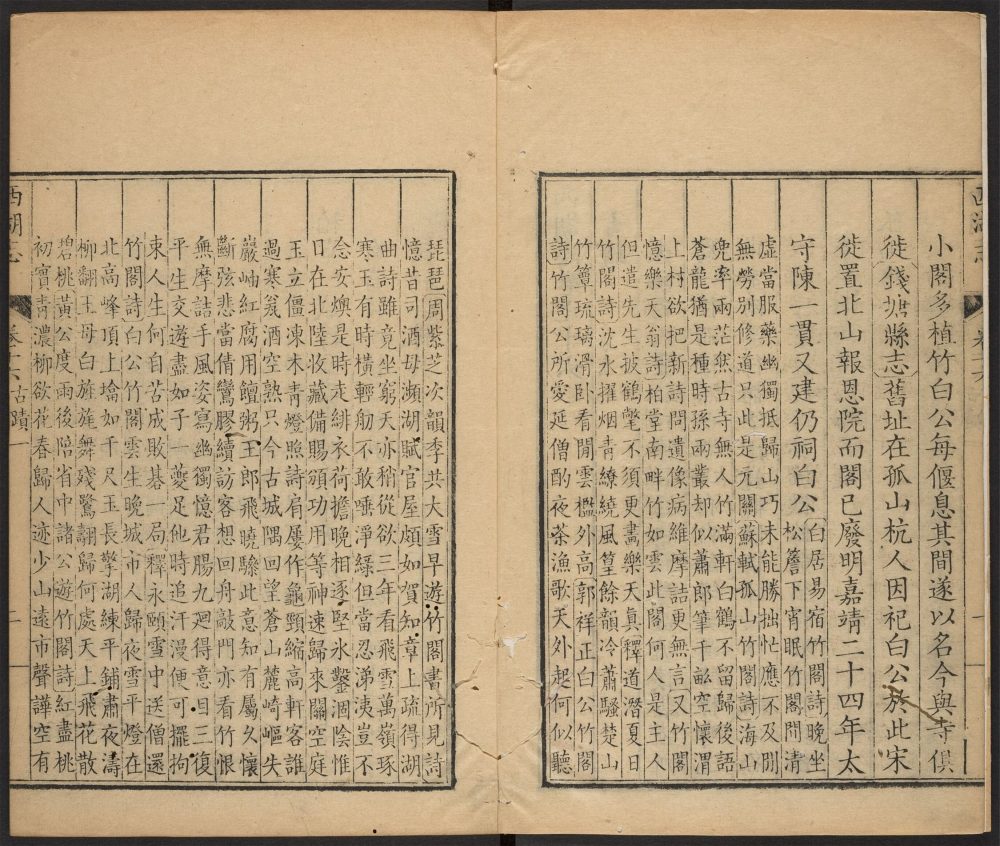 小閣多植竹白公每偃息其間遂以名今與寺俱
徙錢塘縣志舊址在孤山杭人因祀白公於此宋
徙置北山報恩院而閣已廢明嘉靖二十四年太
守陳一貫又建仍祠白公
白居易宿竹閣詩晚坐
松簷下宵眠竹閣間清
虛當服藥幽獨抵歸山巧未能勝拙忙應不及閒
無勞別修道只此是元關蘇軾孤山竹閣詩海山
兜率兩茫然古寺無人竹滿軒白鶴不留歸後語
蒼龍猶是種時孫兩叢却似蕭郎筆千畝空懷渭
上村欲把新詩問遺像病維摩詰更無言又竹閣
憶樂天翁詩柏堂南畔竹如雲此閣何人是主人
但遣先生披鶴氅不須更畫樂天真釋道潛夏日
竹閣詩沈水擢烟青繚繞風篁餘韻冷蕭騷楚山
竹簟琉璃滑臥看閒雲檻外高郭祥正白公竹閣
詩竹閣公所愛延僧酌夜茶漁歌天外起何似聽
琵琶周紫芝次韻李共大雪早遊竹閣書所見詩
憶昔司酒母瀕湖賦官屋頗如賀知章上疏得湖
曲詩雖竟坐窮天亦稍從欲三年看飛雪萬嶺琢
寒玉有時橫輕舠不敢唾淨綠但當忍涕洟豈不
念安燠是時走緋衣荷擔晚相逐堅氷鑿涸陰惟
日在北陸收藏備賜頒功用等神速歸來闞空庭
玉立僵凍木青燈照詩肩屢作龜頸縮高軒客誰
過寒翁酒空熟只今古城隅回望蒼山麓崎嶇失
巖岫紅腐用饘粥王郎飛曉騄此意知有屬久懷
斷弦悲當倩鸞膠續訪客想回舟敲門亦看竹恨
無摩詰手風姿寫幽獨憶君腸九廻得意目三復
平生交遊盡如子一夔足他時追汗漫便可擺拘
束人生何自苦成敗棊一局釋永頤雪中送僧還
竹閣詩白公竹閣雲生晚城市人歸夜雪平燈在
北高峰頂上墖如千尺玉長擎湖練平鋪肅夜濤
柳翻玉母白旄旄舞殘鷺翿歸何處天上飛花散
碧桃黃公度雨後陪省中諸公遊竹閣詩紅盡桃
初實青濃柳欲花春歸人迹少山遠市聲譁空有
西湖志
卷十六古蹟一
二